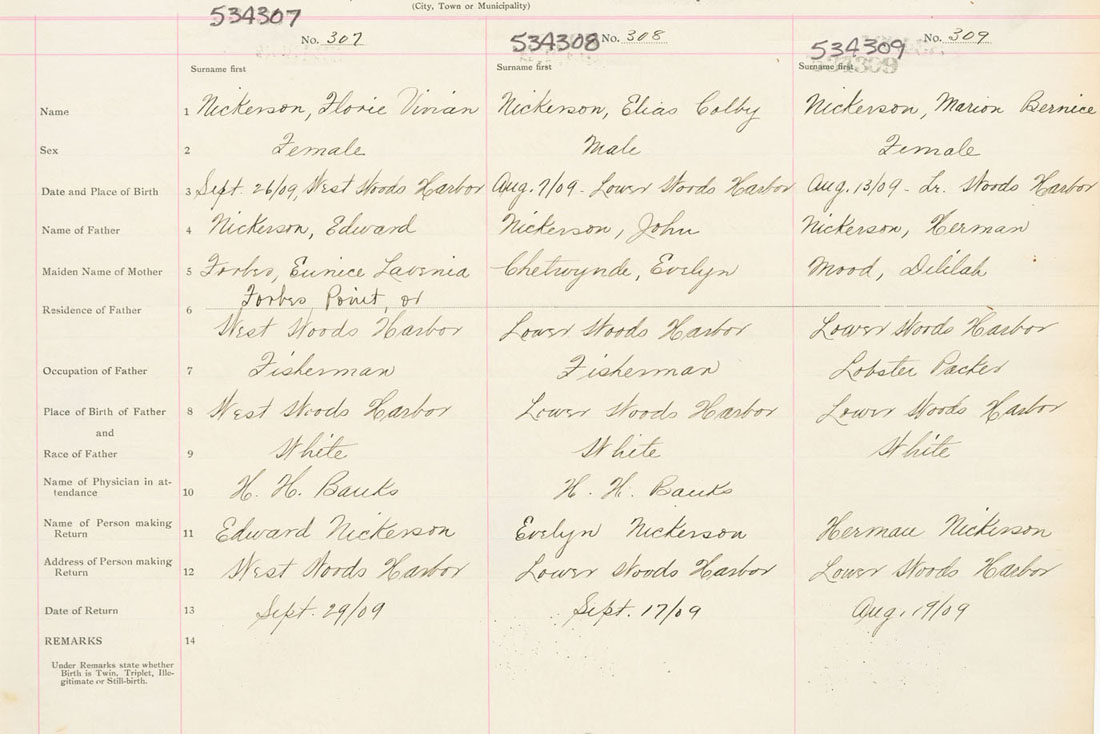 (City, Town or Municipality)
534307 534308 534309
No. 307 No. 308 No. 309
Surname first Surname first Surname first
Name 1 Nickerson, Florie Vivian Nickerson, Elias Colby Nickerson, Marion Bernice
Sex 2 Female Male Female
Date and Place of Birth 3 Sept. 26/09, West Woods Harbor Aug. 7/09 - Lower Woods Harbor Aug. 13/09 - Lr. Woods Harbor
Name of Father 4 Nickerson, Edward Nickerson, John Nickerson, Herman
Maiden Name of Mother 5 Forbes, Eunice Lavenia Chetwynde, Evelyn Mood, Delilah
Forbes Point, or
Residence of Father 6 West Woods Harbor Lower Woods Harbor Lower Woods Harbor
Occupation of Father 7 Fisherman Fisherman Lobster Packer
Place of Birth of Father 8 West Woods Harbor Lower Woods Harbor Lower Woods Harbor
and
Race of Father 9 White White White
Name of Physician in at-
tendance 10 H. H. Banks H. H. Banks
Name of Person making
Return 11 Edward Nickerson Evelyn Nickerson Herman Nickerson
Address of Person making
Return 12 West Woods Harbor Lower Woods Harbor Lower Woods Harbor
Date of Return 13 Sept. 29/09 Sept. 17/09 Aug. 19/09
REMARKS 14
Under Remarks state whether
Birth is Twin, Triplet, Ille-
gitimate or Still-birth.